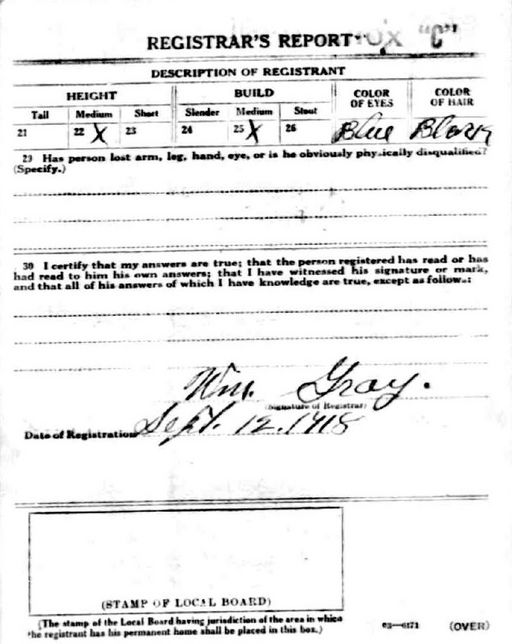 REGISTRAR'S REPORT "C"
DESCRIPTION OF REGISTRANT
HEIGHT BUILD COLOR OF EYES COLOR OF HAIR
Tall Medium Short Slender Medium Stout
21 22 X 23 24 25 X 26 Blue Black
29 Has person lost arm, leg, hand, eye, or is he obviously physically disqualified?
(Specify.)
30 I certify that my answers are true; that the person registered has read or has
had read to him his own answers; that I have witnessed his signature or mark,
and that all of his answers of which I have knowledge are true, except as follows:
Wm. Gray.
(Signature of Registrar)
Date of Registration Sept. 12. 1918
(STAMP OF LOCAL BOARD)
(The stamp of the Local Board having jurisdiction of the area in which
the registrant has his permanent home shall be placed in this box.)
(OVER)